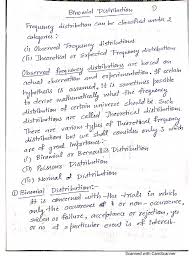 Binomial Distribution
Frequency distribution can be classified under 2
categories:
(i) Observed Frequency distributions
(ii) Theoretical or Expected Frequency distribution
Observed frequency distributions are based on
actual observation and experimentation. If certain
hypothesis is assumed, it is sometimes possible
to derive mathematically what the frequency
distribution of certain universe should be. Such
distributions are called Theoretical distributions.
There are various types of Theoretical frequency
distributions but we shall consider only 3 which
are of great Importance:-
(i) Binomial or Bernoulli's Distribution
(ii) Poissons Distribution
(iii) Normal Distribution
① Binomial Distribution:-
It is concerned with the trials in which
only the occurrence or non-occurrence,
success or failure, acceptance or rejection, yes
or no of a particular event is of interest.
Scanned with CamScanner